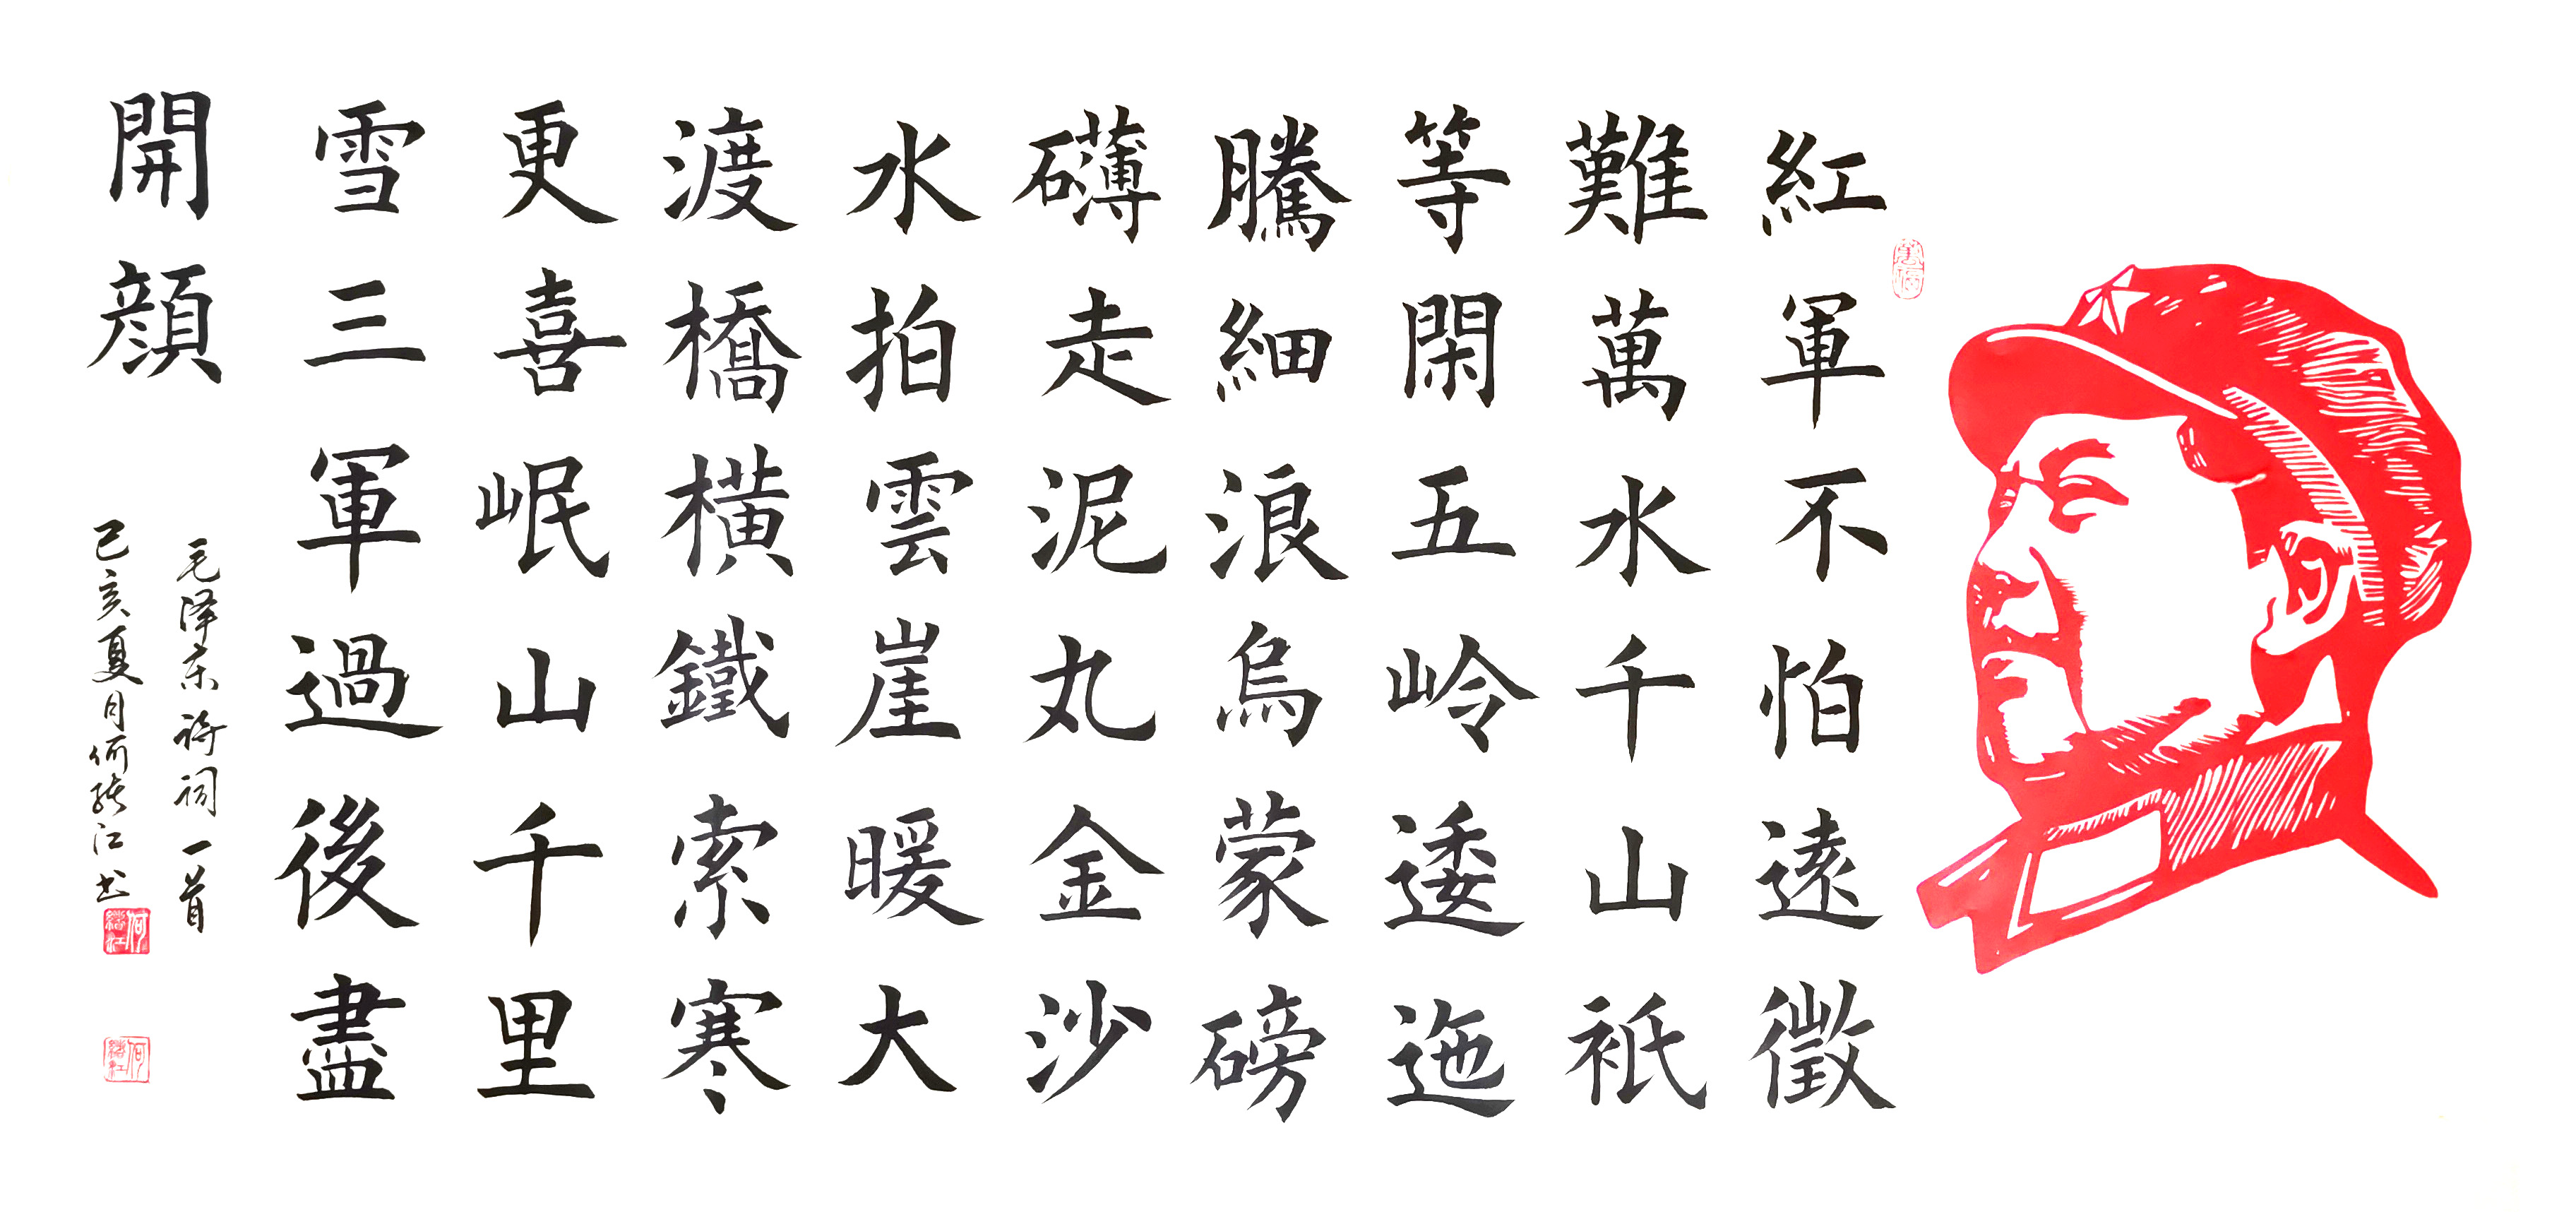 紅軍不怕遠徵
難萬水千山衹
等閑五岭逶迤
騰細浪烏蒙磅
礴走泥丸金沙
水拍雲崖暖大
渡橋橫鐵索寒
更喜岷山千里
雪三軍過後盡
開顔
毛泽东诗词一首
己亥夏月何继江书
何継江
何継江